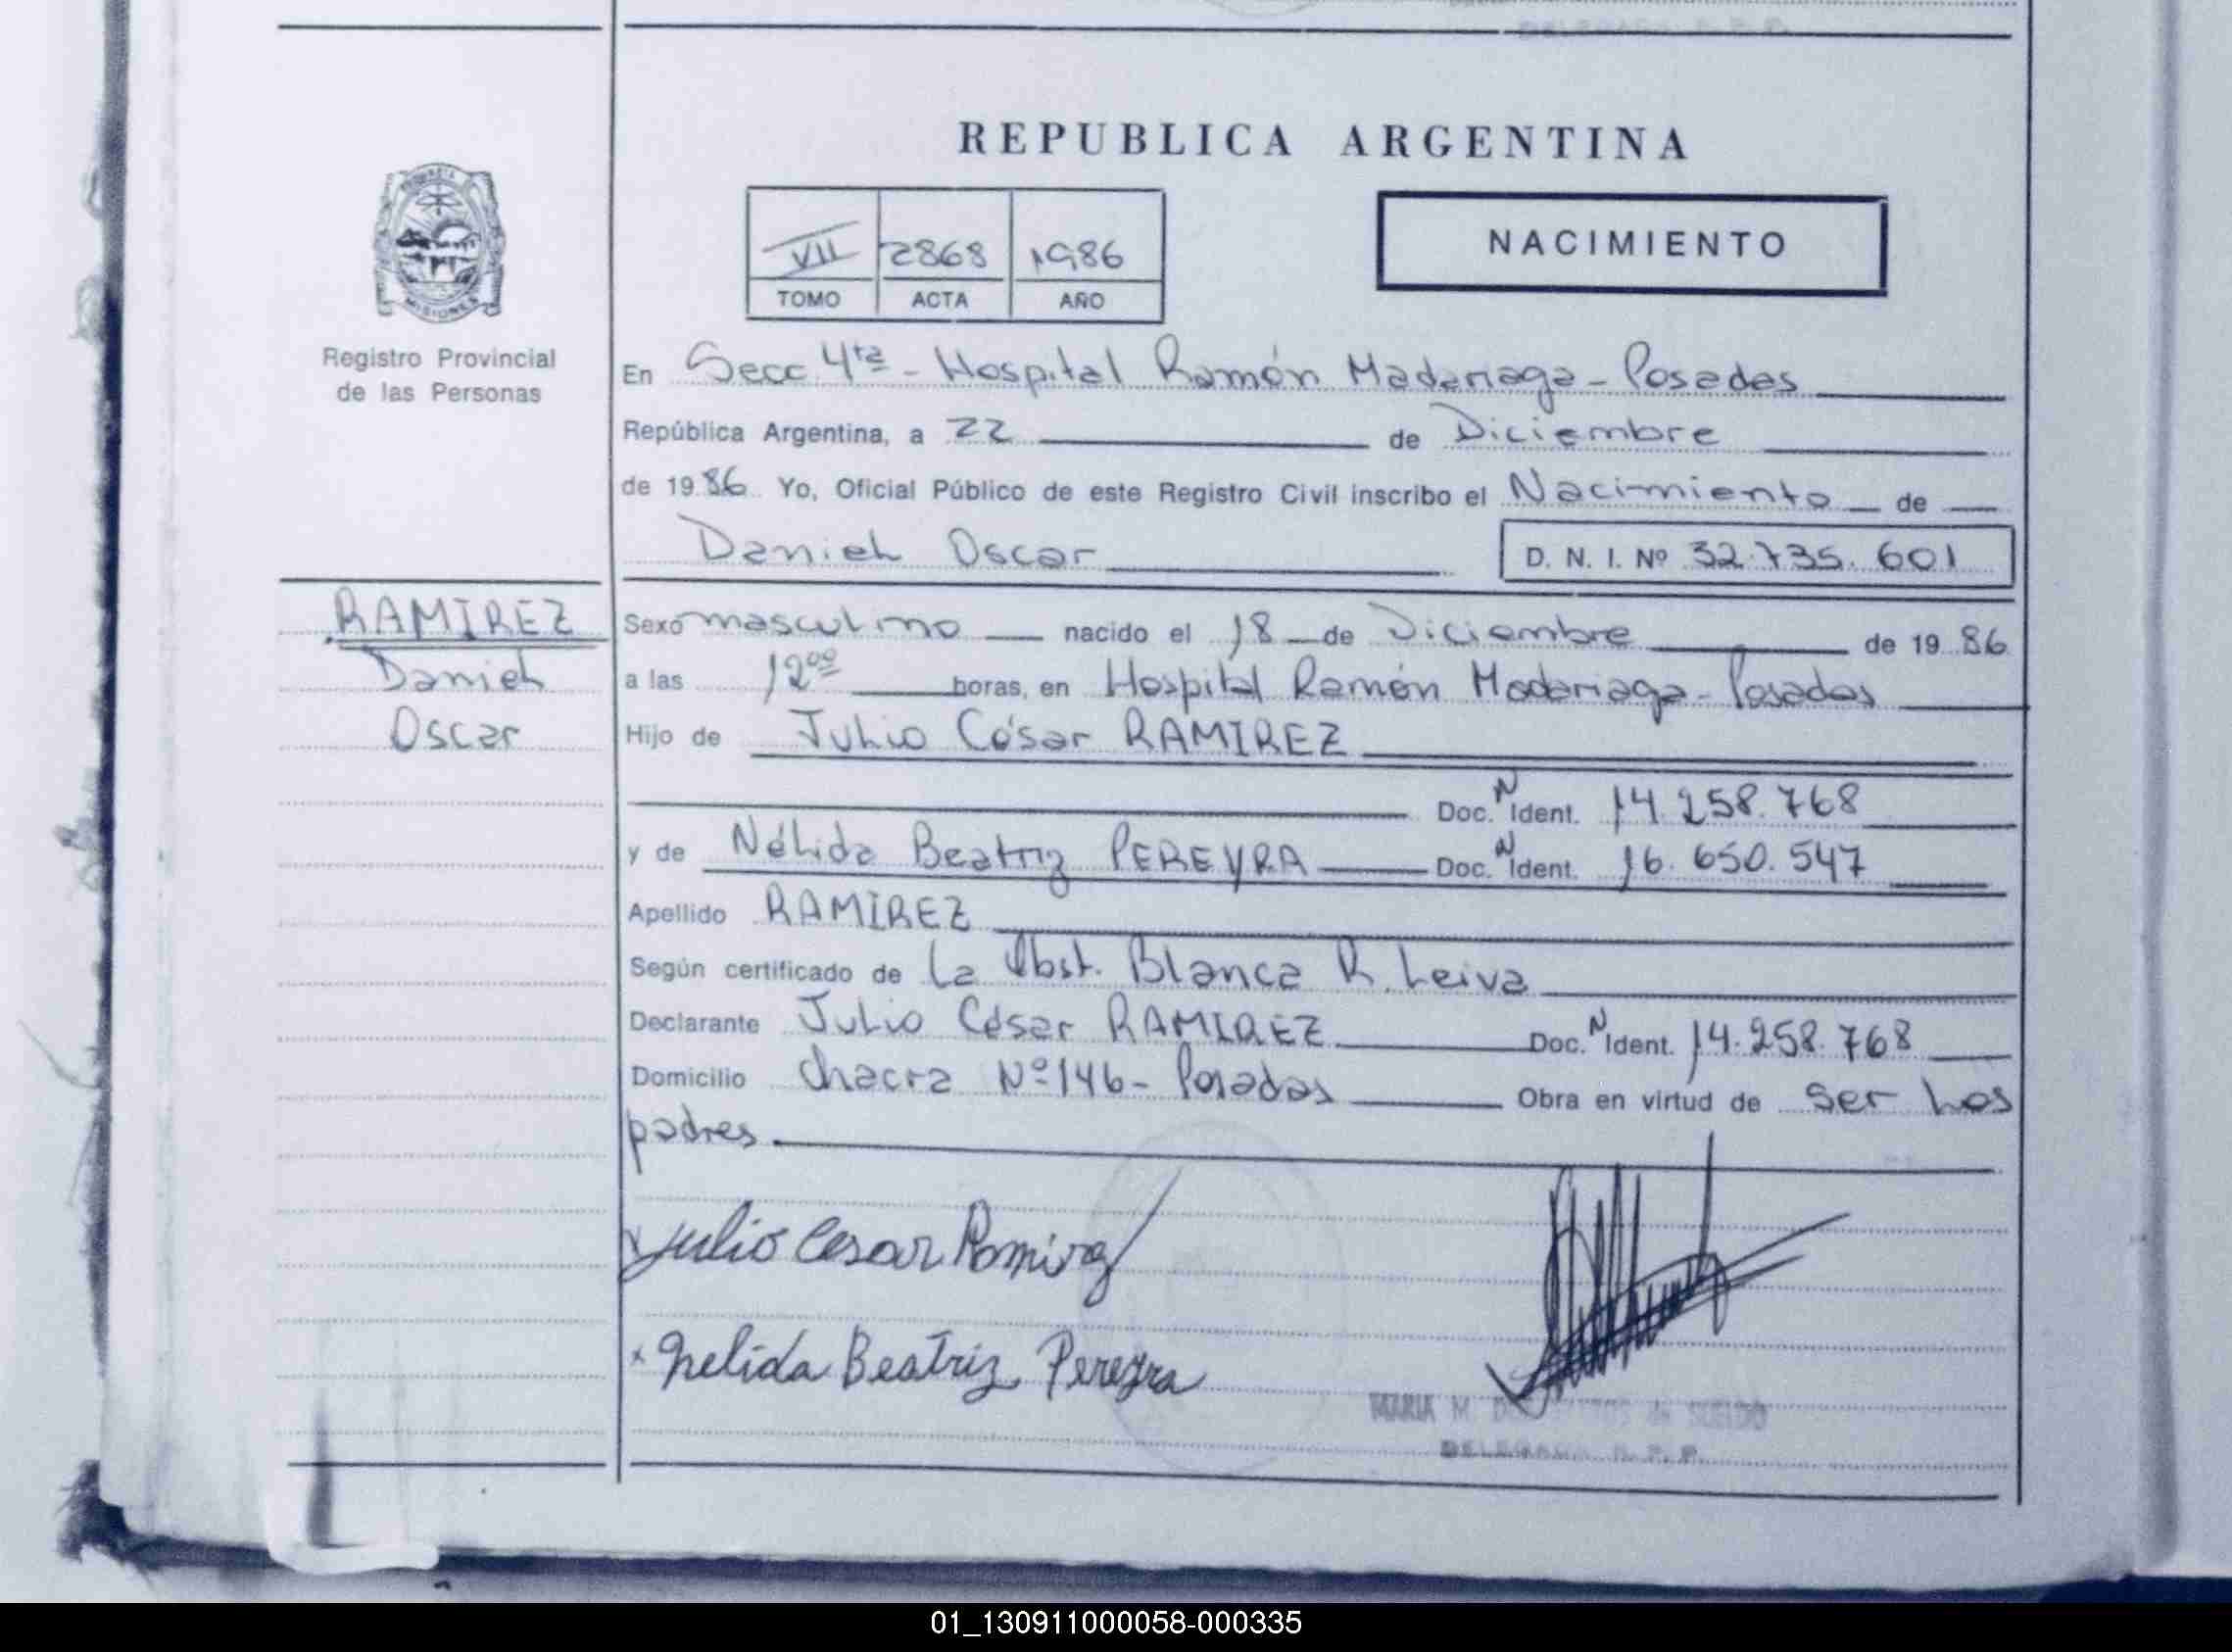 REPUBLICA ARGENTINA
PROVINCIA
MISIONES
Registro Provincial
de las Personas
VII 2868 1986
TOMO ACTA AÑO
NACIMIENTO
En Secc 4ta - Hospital Ramón Madariaga - Posadas
República Argentina, a 22 de Diciembre
de 1986 Yo, Oficial Público de este Registro Civil inscribo el Nacimiento de
Daniel Oscar D. N. I. Nº 32.735.601
RAMIREZ
Daniel
Oscar
Sexo masculino nacido el 18 de Diciembre de 1986
a las 12 00 horas, en Hospital Ramón Madariaga - Posadas
Hijo de Julio César RAMIREZ
Doc. N Ident. 14.258.768
y de Nélida Beatriz PEREYRA Doc. N Ident. 16.650.547
Apellido RAMIREZ
Según certificado de La Obst. Blanca R. Leiva
Declarante Julio César RAMIREZ Doc. N Ident. 14.258.768
Domicilio Chacra Nº 146 - Posadas Obra en virtud de ser los
padres
Julio Cesar Ramirez
x Nelida Beatriz Pereyra
MARIA M. de SUELDO
DELEGADA R. P. P.
01_130911000058-000335